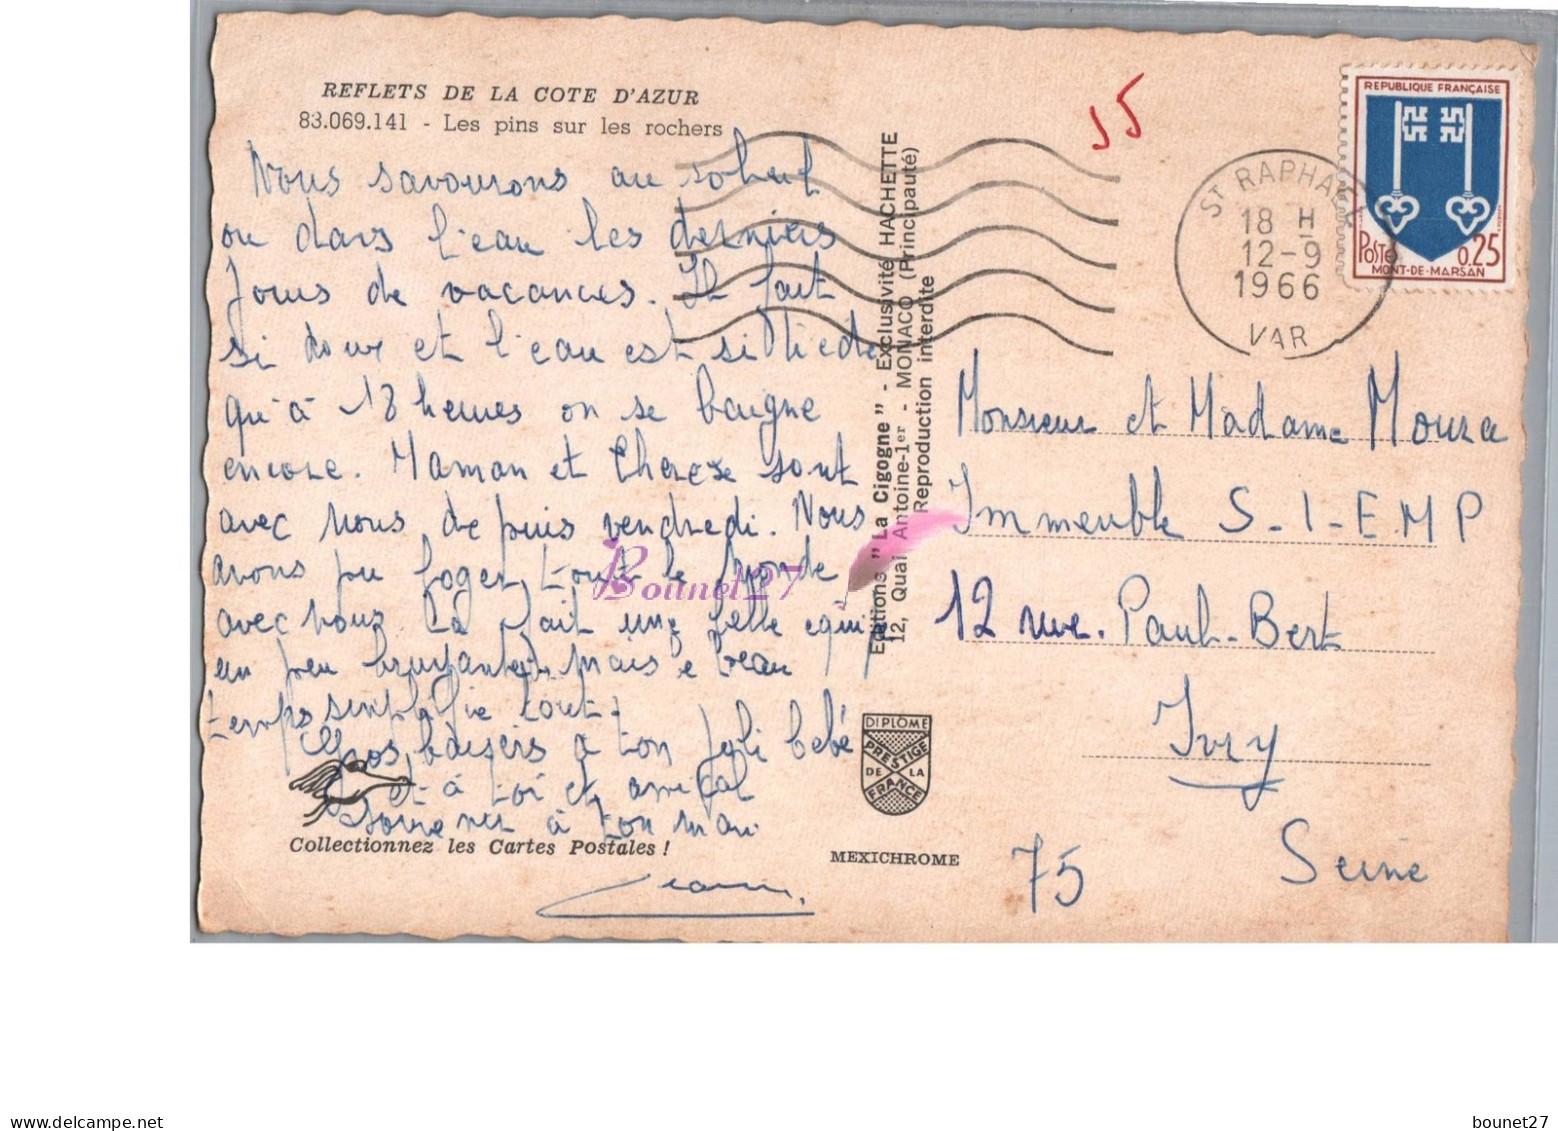 REFLETS DE LA COTE D'AZUR
83.069.141 - Les pins sur les rochers
Nous savourons au soleil
ou dans l'eau les derniers
jours de vacances. Il fait
si doux et l'eau est si tiède
qu'à 18 heures on se baigne
encore. Maman et Therese sont
avec nous depuis vendredi. Nous
avons pu loger tout le monde
avec nous. Ca fait une belle equipe
un peu bruyante, mais le beau
temps simplifie tout.
Gros baisers à ton joli bebé
et à toi et amical
souvenir à ton mari
Collectionnez les Cartes Postales !
Editions "La Cigogne" - Exclusivité HACHETTE
12, Quai Antoine-1er - MONACO (Principauté)
Reproduction interdite
DIPLÔME
PRESTIGE
DE LA
FRANCE
MEXICHROME
55
ST RAPHAEL
18 H
12-9
1966
VAR
REPUBLIQUE FRANÇAISE
POSTE 0,25
MONT-DE-MARSAN
Monsieur et Madame Moura
Immeuble S-I-E-M P
12 rue. Paul-Bert
Ivry
Seine
75
Bounet27
delcampe.net
bounet27